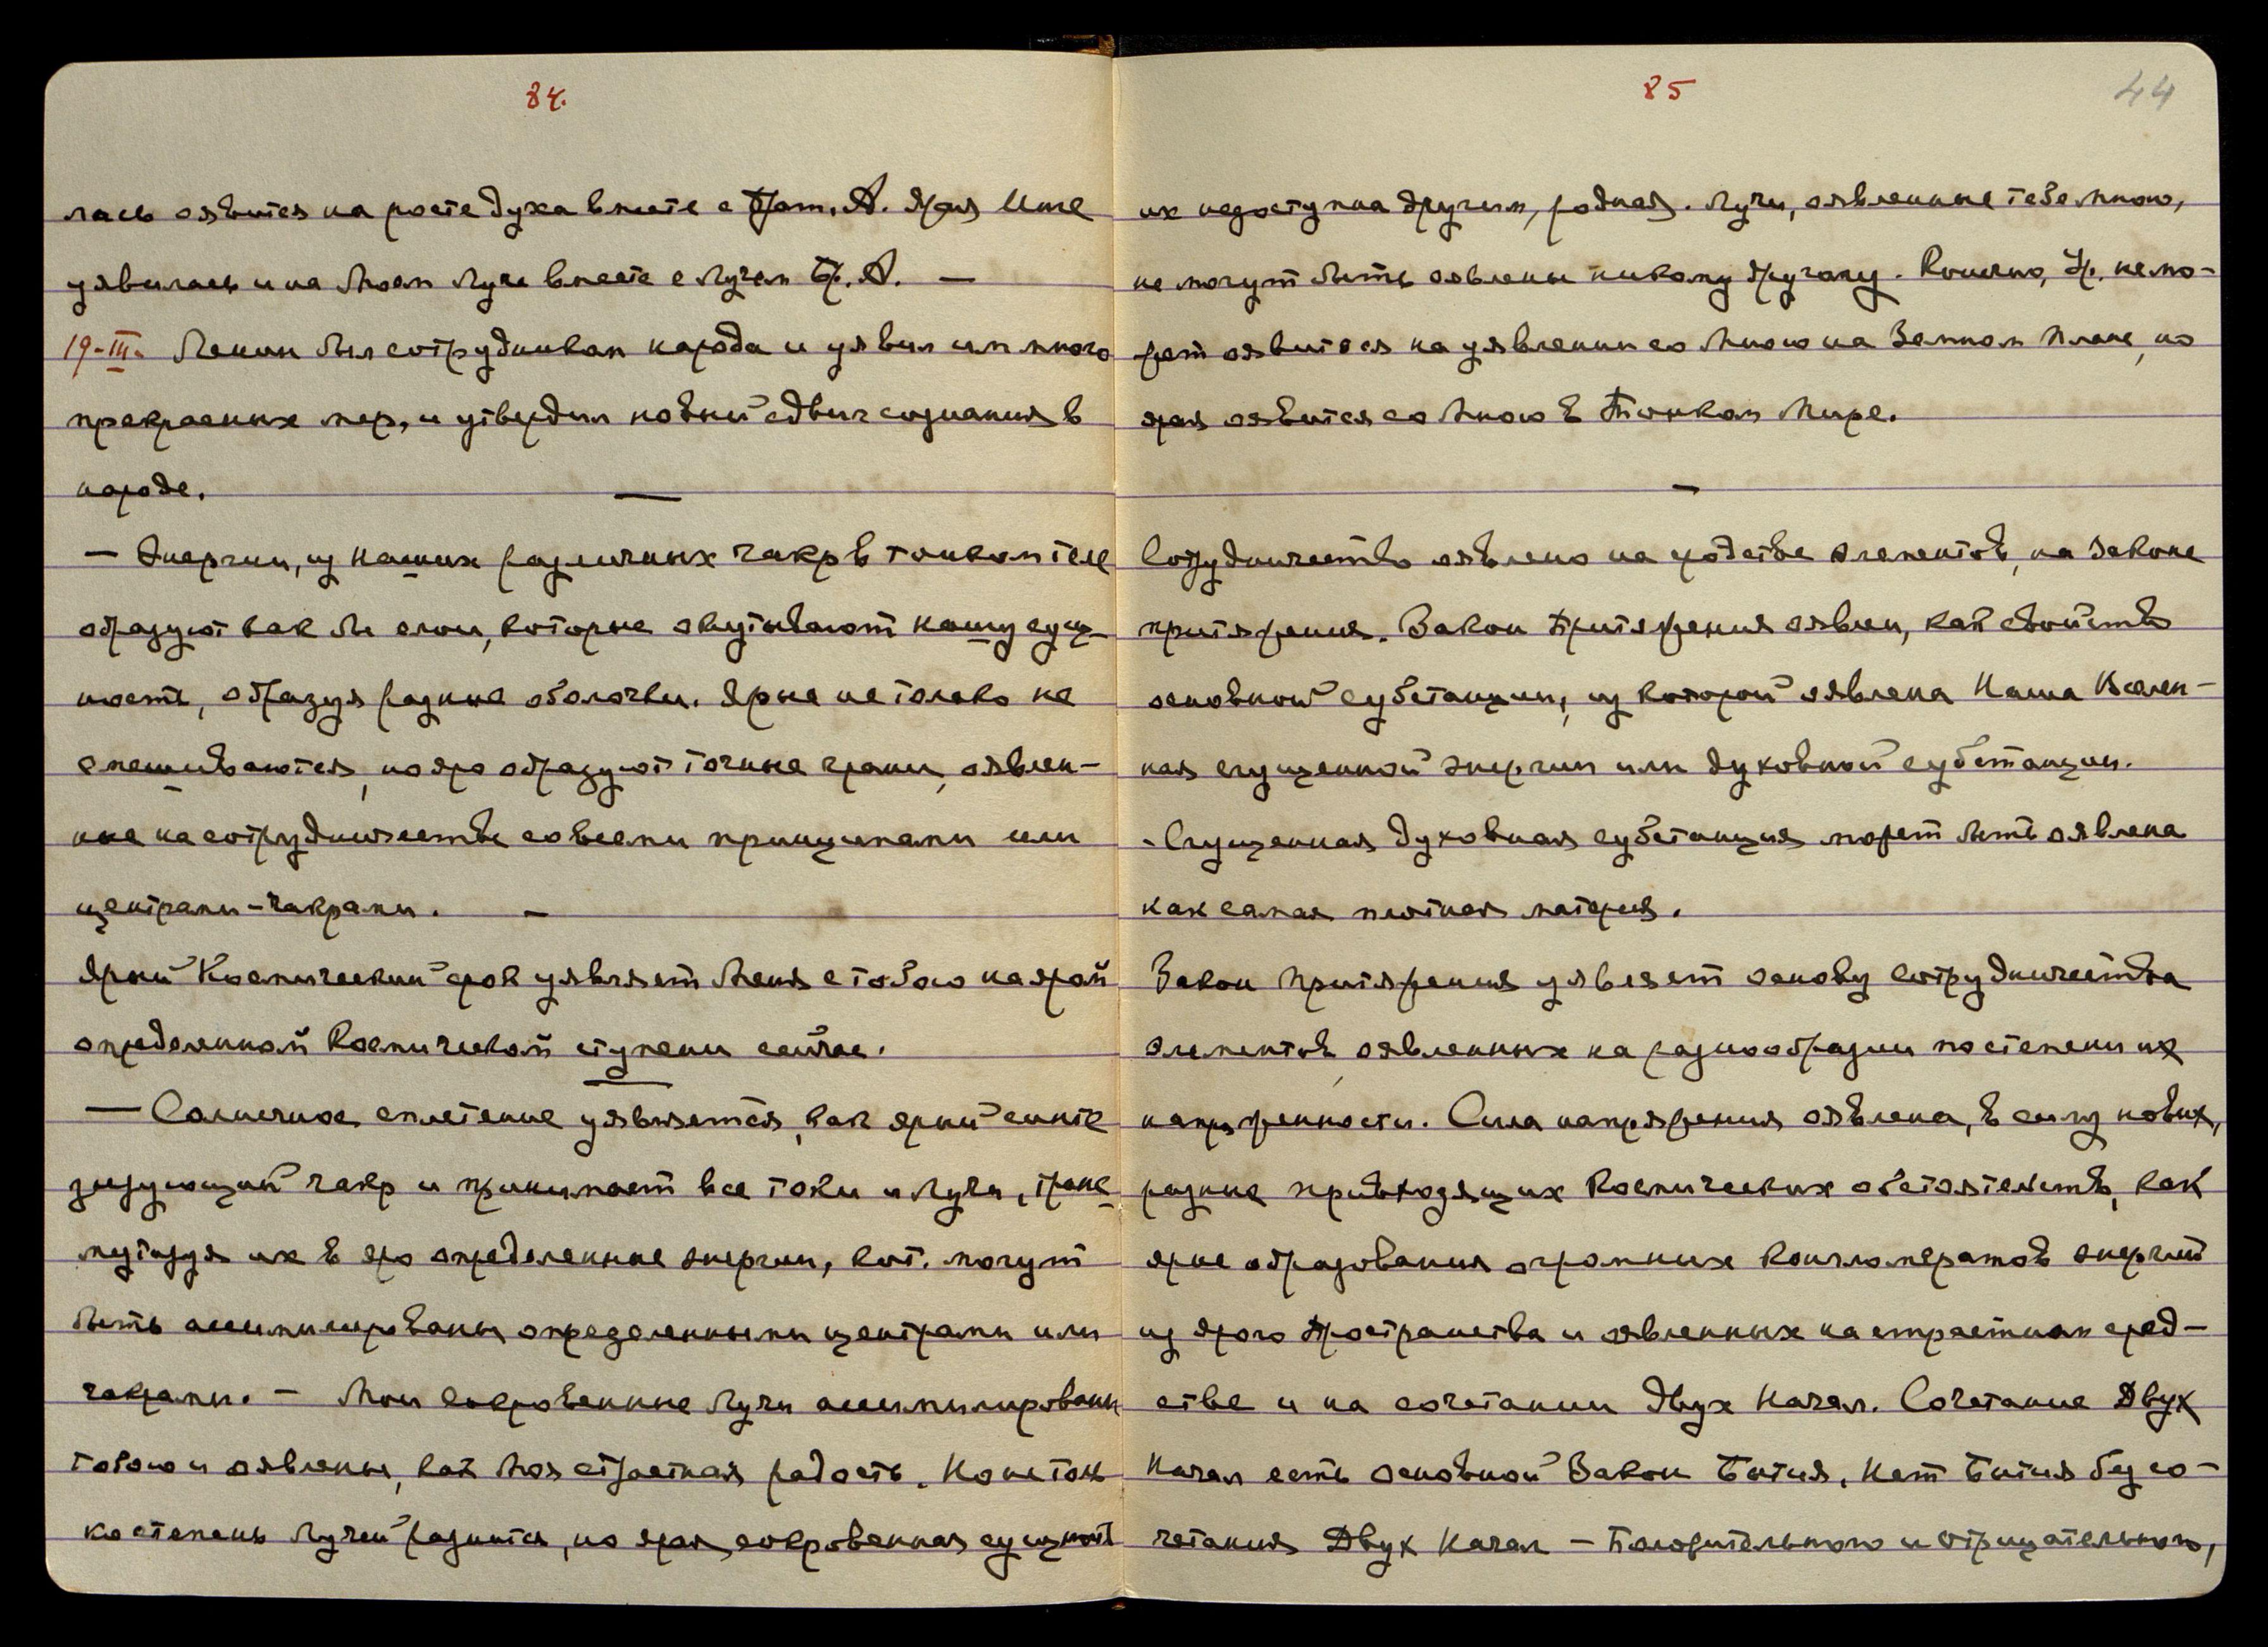 84.
лась оявится на росте духа вместе с Брат. А. Ярая Мне
уявилась и на Моем Луче вместе с Лучем Бр. А. —
19-III. Ленин был сотрудником народа и уявил им много
прекрасных мер, и утвердил новый сдвиг сознания в
народе. —
— Энергии, из наших различных чакр в тонком теле
образуют как бы слои, которые окутывают нашу сущ-
ность, образуя разные оболочки. Ярые не только не
смешиваются, но яро образуют точные грани, оявлен-
ные на сотрудничестве со всеми принципами или
центрами-чакрами. —
Ярый Космический срок уявляет Меня с тобою на ярой
определенной Космической ступени сейчас.
— Солнечное сплетение уявляется, как ярый синте
зирующий чакр и принимает все токи и Лучи, транс
мутируя их в яро определенные энергии, кот. могут
быть ассимилированы определенными центрами или
чакрами. — Мои сокровенные Лучи ассимилированы
тобою и оявлены, как Моя страстная радость. Но не толь
ко степень Лучей разнится, но ярая сокровенная сущность
85
44
их недоступна другим, родная. Лучи, оявленные тебе Мною,
не могут быть оявлены никому другому. Конечно, Ур. не мо-
жет оявиться на уявлении со Мною на Земном Плане, но
ярая оявится со Мною в Тонком Мире.
—
Сотрудничество оявлено на сродстве элементов, на Законе
притяжения. Закон Притяжения оявлен, как свойство
основной субстанции, из которой оявлена Наша Вселен-
ная сгущенной энергии или духовной субстанции.
- Сгущенная духовная субстанция может быть оявлена
как самая плотная материя.
Закон Притяжения уявляет основу сотрудничества
элементов, оявленных на разнообразии по степени их
напряженности. Сила напряжения оявлена, в силу новых,
разных привходящих Космических обстоятельств, как
ярые образования огромных конгломератов энергий
из ярого Пространства и оявленных на страстном срод-
стве и на сочетании Двух Начал. Сочетание Двух
Начал есть основной Закон Бытия, Нет Бытия без со-
четания Двух Начал — Положительного и Отрицательного,